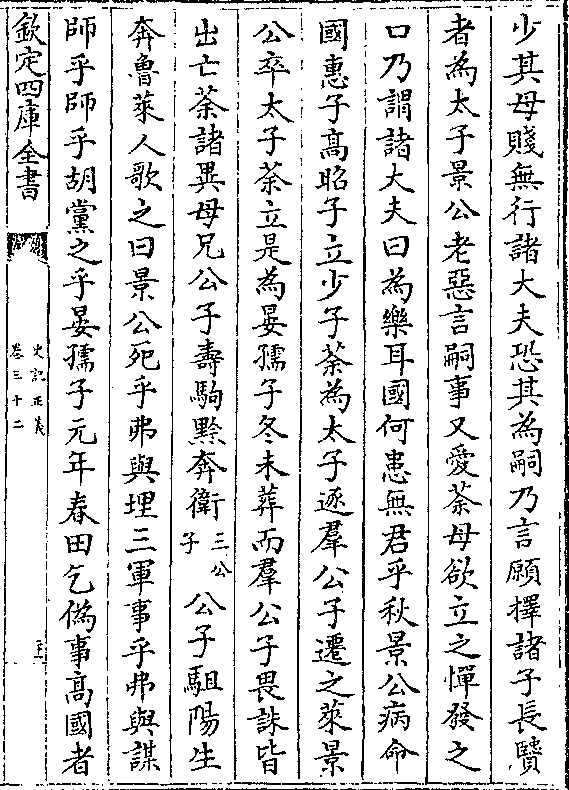 少其母賤無行諸大夫恐其為嗣乃言願擇諸子長賢
者為太子景公老惡言嗣事又愛荼母欲立之憚發之
口乃謂諸大夫曰為樂耳國何患無君乎秋景公病命
國惠子高昭子立少子荼為太子逐羣公子遷之萊景
公卒太子荼立是為晏孺子冬未葬而羣公子畏誅皆
出亡荼諸異母兄公子壽駒黔奔衛三公子公子駔陽生
奔魯萊人歌之曰景公死乎弗與埋三軍事乎弗與謀
師乎師乎胡黨之乎晏孺子元年春田乞偽事高國者
欽定四庫全書
史記正義
卷三十二